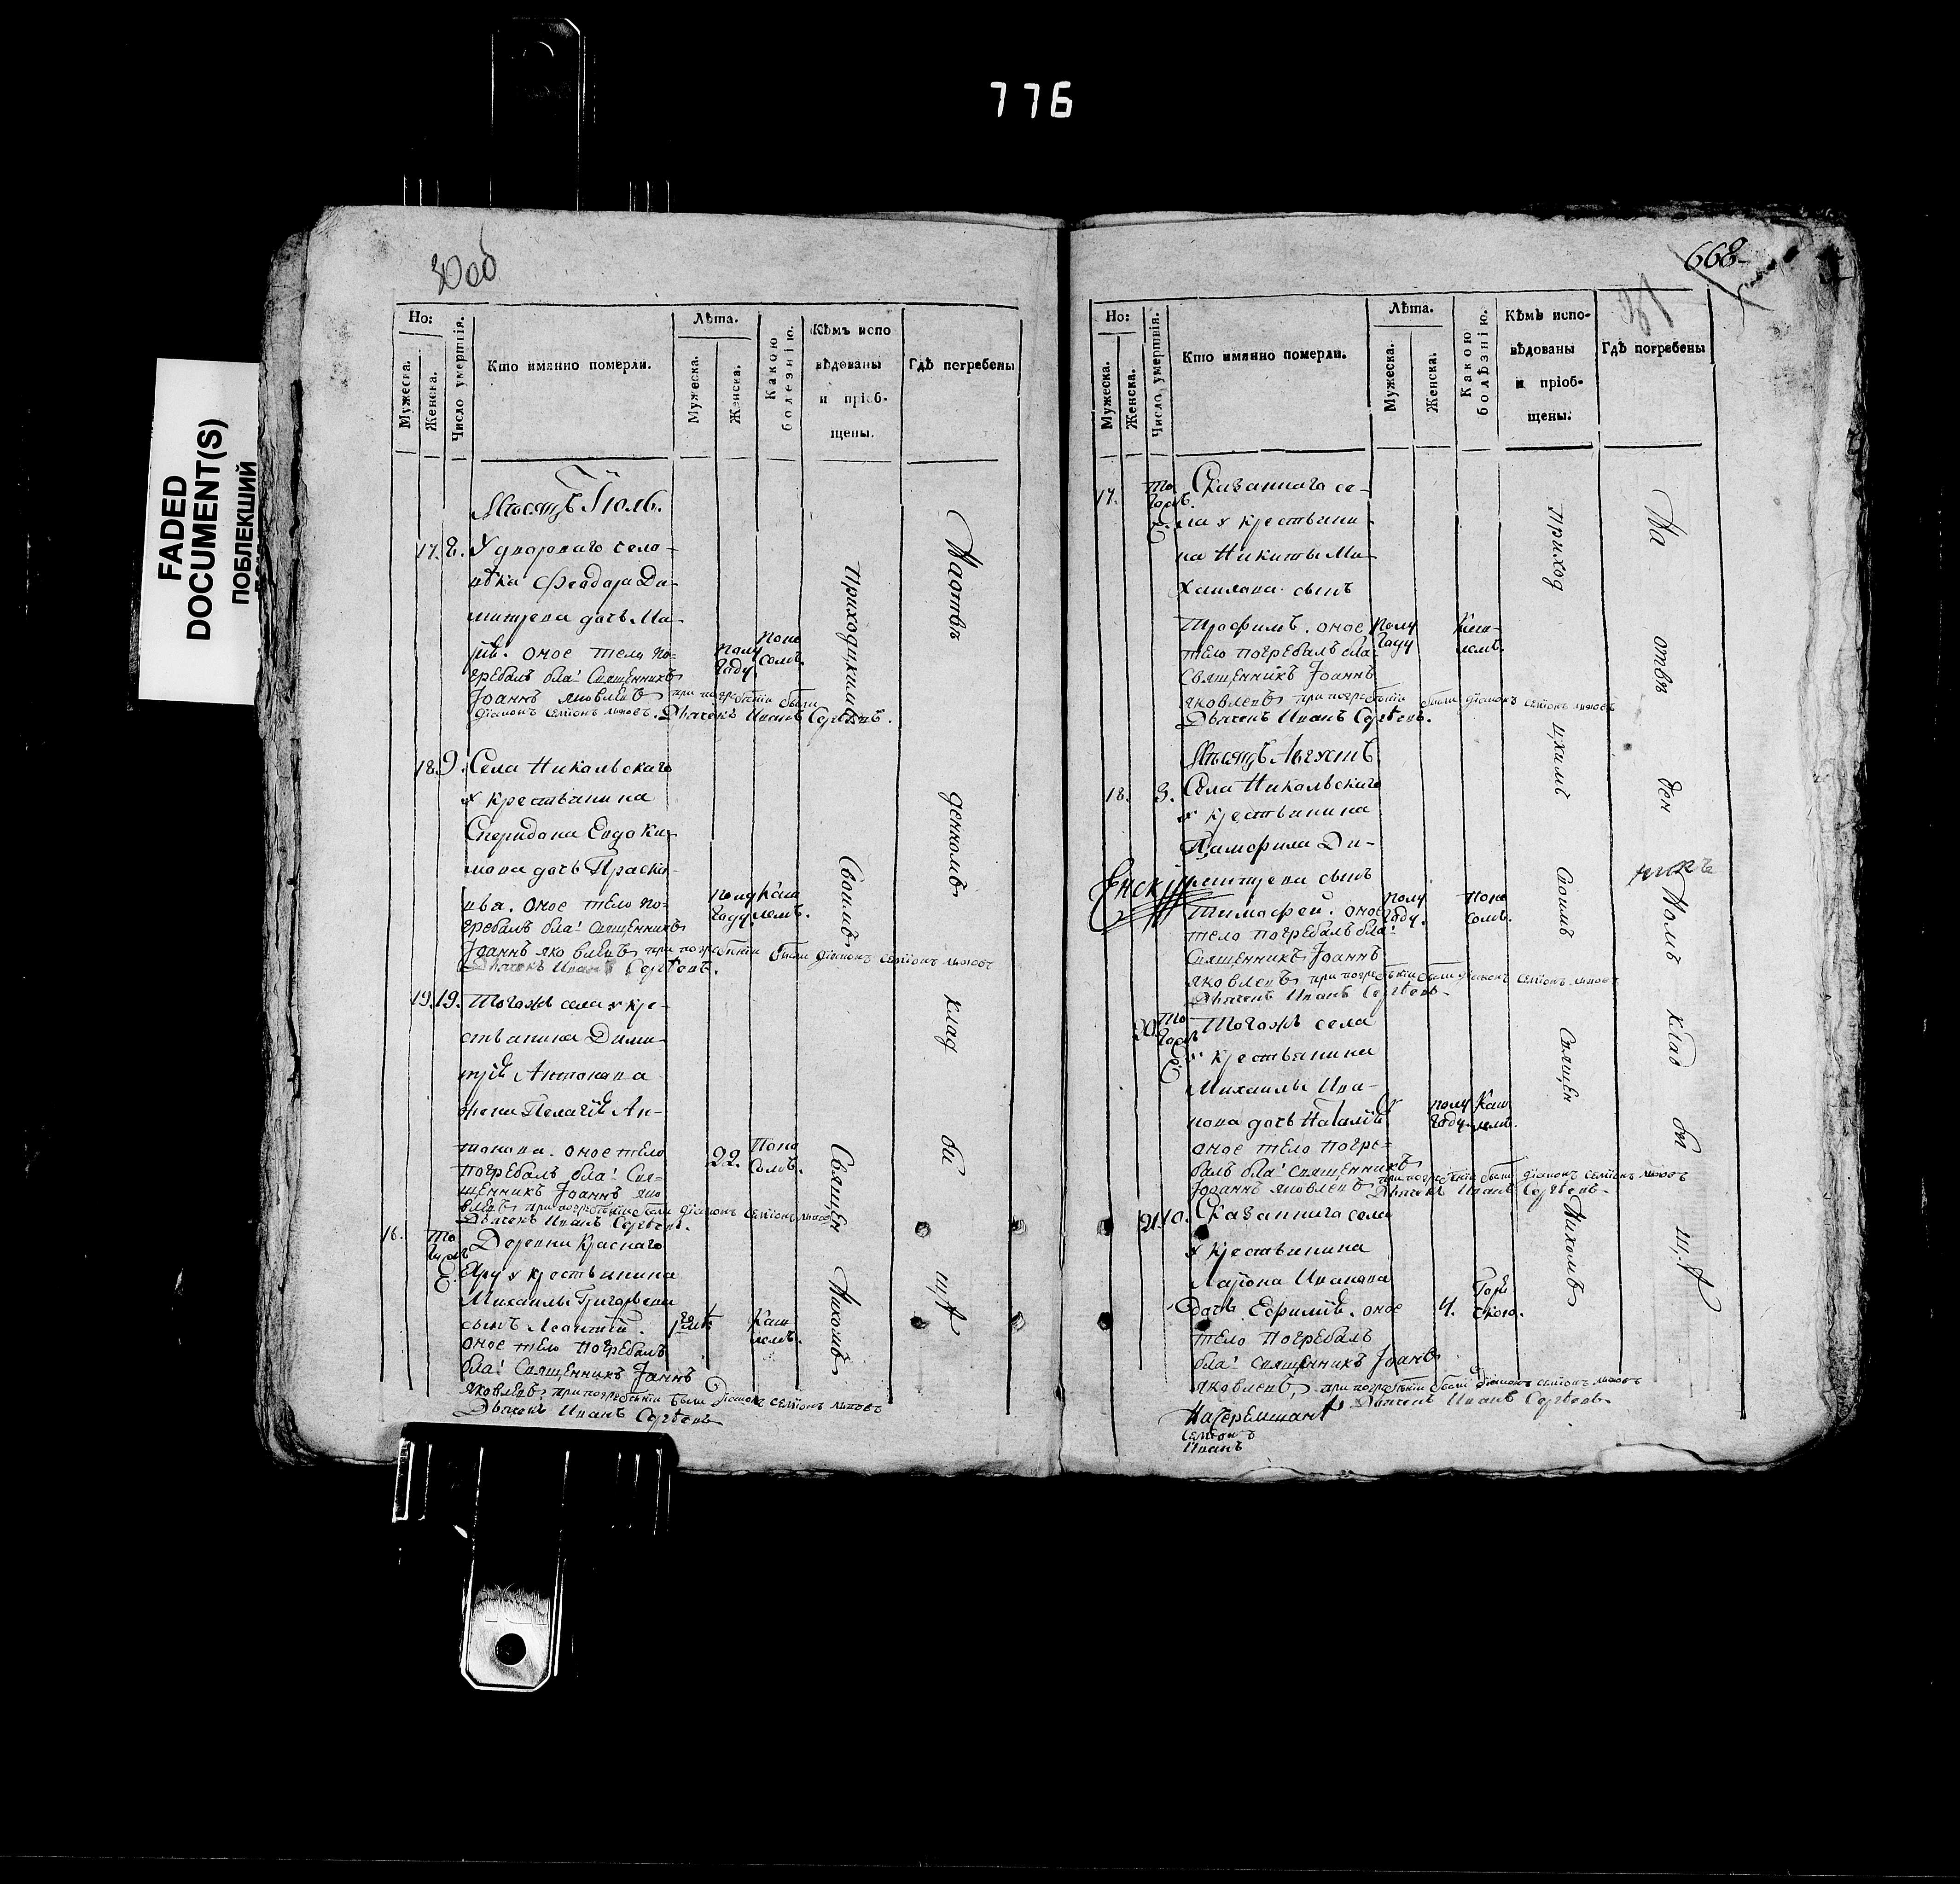 776
FADED
DOCUMENT(S)
ПОБЛЕКШИЙ
30об
Но:
Мужеска.
Женска.
Число умертвія.
Кто имянно померли.
Лѣта.
Мужеска.
Женска.
Какою болезнію.
Кѣмъ испо
вѣдованы
и пріоб-
щены.
Гдѣ погребены
Мѣсяцъ Іюль.
17. 2. Удворнаго чело-
вѣка Феодора Ди-
митрева дочь Ма-
рія. оное тело по-
гребалъ бла: Священникъ
Іоаннъ яковлевъ при погребѣніи были
діаконъ семіонъ львовъ. Дьячекъ Иванъ Сергѣевъ.
полу
году.
поно
сомъ.
18. 9. Села Никольскаго
у крестьянина
Спиридона Евдоки-
мова дочь Праско-
вья. оное тело по-
гребалъ бла: Священникъ
Іоаннъ яковлевъ при погребѣніи были діаконъ семіонъ львовъ
Дьячекъ Иванъ Сергѣевъ.
полу
году
Каш
лемъ.
19. 19. Тогожъ села у кре-
стьянина Дими-
трія Антонова
жена Пелагія Ан-
тонова. оное тело
погребалъ бла: Свя-
щенникъ Іоаннъ яко
влевъ при погребѣніи были діаконъ семіонъ львовъ
Дьячекъ Иванъ Сергѣевъ.
22.
Поно
сомъ.
16. То
гожъ
Деревни Краснаго
Яру у крестьянина
Михаилы Григорьева
сынъ Леонтій.
оное тело погребалъ
бла: Священникъ Іоаннъ
яковлевъ при погребѣніи были Діаконъ семіонъ львовъ
Дьячекъ Иванъ Сергѣевъ
1
Каш
лемъ.
Приходцкимъ
Своимъ
Священ
никомъ
Наотвѣ
денномъ
клад
би
щѣ
668
31
Но:
Мужеска.
Женска.
Число умертвія.
Кто имянно померли.
Лѣта.
Мужеска.
Женска.
Какою болѣзнію.
Кѣмъ испо-
вѣдованы
и пріоб-
щены.
Гдѣ погребены
17. То
гожъ.
Сказаннаго се-
ла у крестьяни-
на Никиты Ми-
хаилова сынъ
Трофимъ. оное
тело погребалъ бла:
Священникъ Іоаннъ
яковлевъ при погребѣніи были діаконъ семіонъ львовъ
Дьячекъ Иванъ Сергѣевъ.
полу
году
Каш-
лемъ.
Мѣсяцъ Августъ.
18. 3. Села Никольскаго
у крестьянина
Памфила Ди-
митрева сынъ
Тимофей. оное
тело погребалъ бла:
Священникъ Іоаннъ
яковлевъ при погребѣніи были діаконъ семіонъ львовъ
Дьячекъ Иванъ Сергѣевъ.
полу
году.
поно
сомъ.
20 То
гожъ
Тогожъ села
у крестьянина
Михаилы Ива-
нова дочь Наталія
оное тело погре-
балъ бла: Священникъ
Іоаннъ яковлевъ при погребѣніи были діаконъ семіонъ львовъ
Дьячекъ Иванъ Сергѣевъ.
полу
году.
Каш
лемъ.
21. 10. Сказаннаго села
у крестьянина
Ларіона Иванова
дочь Ефимія. оное
тело погребалъ
бла: священникъ Іоаннъ
яковлевъ, при погребѣніи были діаконъ семіонъ львовъ
Дьячекъ Иванъ Сергѣевъ.
4.
Горя
чкою.
Приход
цкимъ
Своимъ
Священ
Никомъ
На
отвѣ
ден
Номъ
клад
би
щѣ
Семіонъ
Иванъ